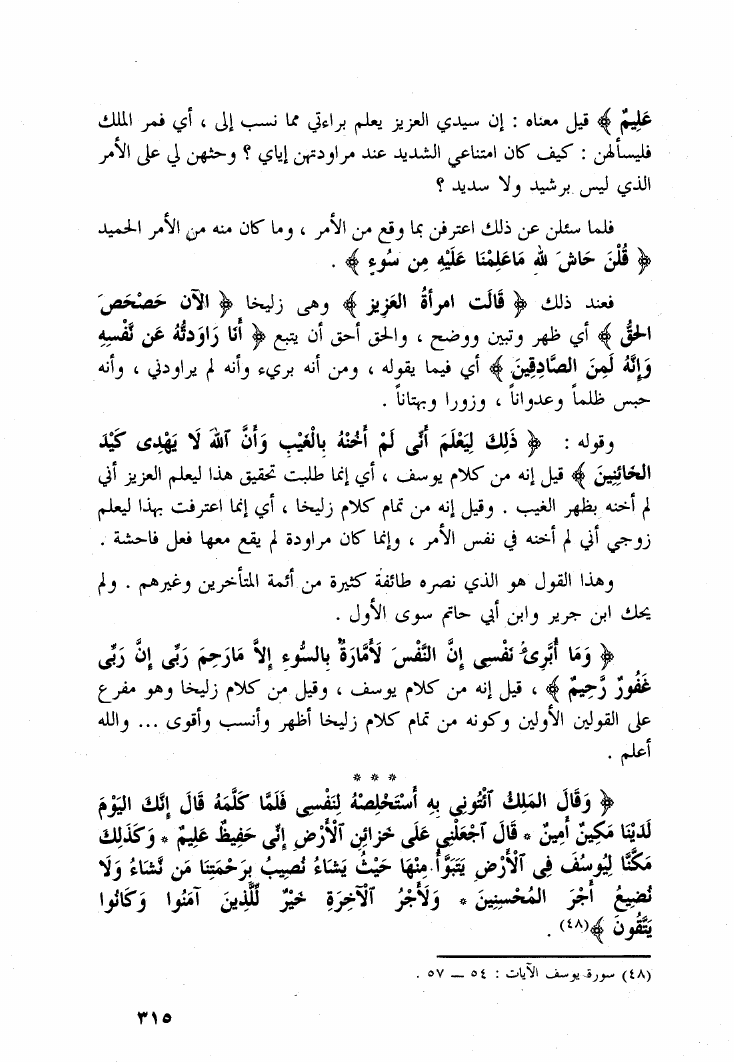 عَلِيمٌ ﴾ قيل معناه : إن سيدي العزيز يعلم براءتي مما نسب إلى ، أي فمر الملك
فليسألهن : كيف كان امتناعي الشديد عند مراودتهن إياي ؟ وحثهن لي على الأمر
الذي ليس برشيد ولا سديد ؟
فلما سئلن عن ذلك اعترفن بما وقع من الأمر ، وما كان منه من الأمر الحميد
﴿ قُلْنَ حَاشَ لله مَاعَلِمْنَا عَلَيْهِ مِن سُوءٍ ﴾ .
فعند ذلك ﴿ قَالَت امرأةُ العَزِيز ﴾ وهى زليخا ﴿ الآن حَصْحَصَ
الحَقُّ ﴾ أي ظهر وتبين ووضح ، والحق أحق أن يتبع ﴿ أَنَا رَاوَدتُّهُ عَن نَّفْسِهِ
وَإِنَّهُ لَمِنَ الصَّادِقِينَ ﴾ أي فيما يقوله ، ومن أنه بريء وأنه لم يراودني ، وأنه
حبس ظلماً وعدواناً ، وزورا وبهتاناً .
وقوله : ﴿ ذَلِكَ لِيَعْلَمَ أَنِّى لَمْ أَخُنْهُ بِالْغَيْبِ وَأَنَّ ٱللهَ لَا يَهْدِى كَيْدَ
الخَائِنِينَ ﴾ قيل إنه من كلام يوسف ، أي إنما طلبت تحقيق هذا ليعلم العزيز أني
لم أخنه بظهر الغيب . وقيل إنه من تمام كلام زليخا ، أي إنما اعترفت بهذا ليعلم
زوجي أني لم أخنه في نفس الأمر ، وإنما كان مراودة لم يقع معها فعل فاحشة .
وهذا القول هو الذي نصره طائفة كثيرة من أئمة المتأخرين وغيرهم . ولم
يحك ابن جرير وابن أبي حاتم سوى الأول .
﴿ وَمَا أُبَرِّىُٔ نَفْسِى إِنَّ النَّفْسَ لَأَمَّارَةٌ بالسُّوءِ إِلاَّ مَارَحِمَ رَبِّى إِنَّ رَبِّى
غَفُورٌ رَّحِيمٌ ﴾ ، قيل إنه من كلام يوسف ، وقيل من كلام زليخا وهو مفرع
على القولين الأولين وكونه من تمام كلام زليخا أظهر وأنسب وأقوى ... والله
أعلم .
* * *
﴿ وَقَالَ المَلِكُ ٱئْتُونِى بِهِ أَسْتَخْلِصْهُ لِنَفْسِى فَلَمَّا كَلَّمَهُ قَالَ إِنَّكَ اليَوْمَ
لَدَيْنَا مَكِينٌ أَمِينٌ * قَالَ ٱجْعَلْنِى عَلَى خَزَائِنِ ٱلْأَرْضِ إِنِّى حَفِيظٌ عَلِيمٌ * وَكَذَلِكَ
مَكَّنَّا لِيُوسُفَ فِى ٱلْأَرْضِ يَتَبَوَّأُ مِنْهَا حَيْثُ يَشَاءُ نُصِيبُ بِرَحْمَتِنَا مَن نَّشَاءُ وَلَا
نُضِيعُ أَجْرَ المُحْسِنِينَ * وَلَأَجْرُ ٱلْآخِرَةِ خَيْرٌ لِّلَّذِينَ آمَنُوا وَكَانُوا
يَتَّقُونَ ﴾(٤٨) .
(٤٨) سورة يوسف الآيات : ٥٤ — ٥٧ .
٣١٥